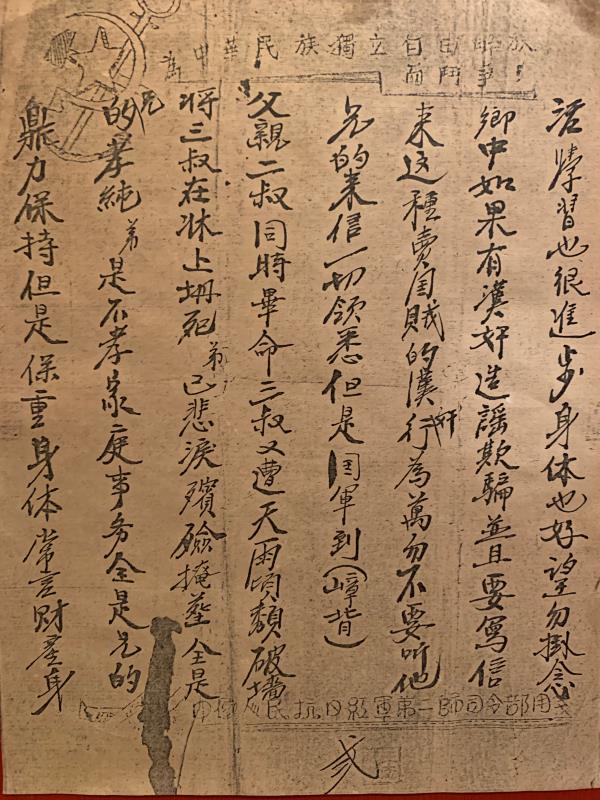 為中華民族獨立自由解放
而鬥爭！
活學習也很進步身体也好望勿掛念
鄉中如果有漢奸造謠欺騙並且要寫信
来这種賣国賊的漢奸行為萬勿不要听他
兄的来信一切領悉但是国軍到（嶂背）
父親二叔同時畢命三叔又遭天雨傾頹破墻
将三叔在牀上坍死弟已悲淚殯殮掩塟全是
兄的孝純弟是不孝家庭事务全是兄的
鼎力保持但是保重身体常言財是身
民抗日紅軍第一師司令部用
弍